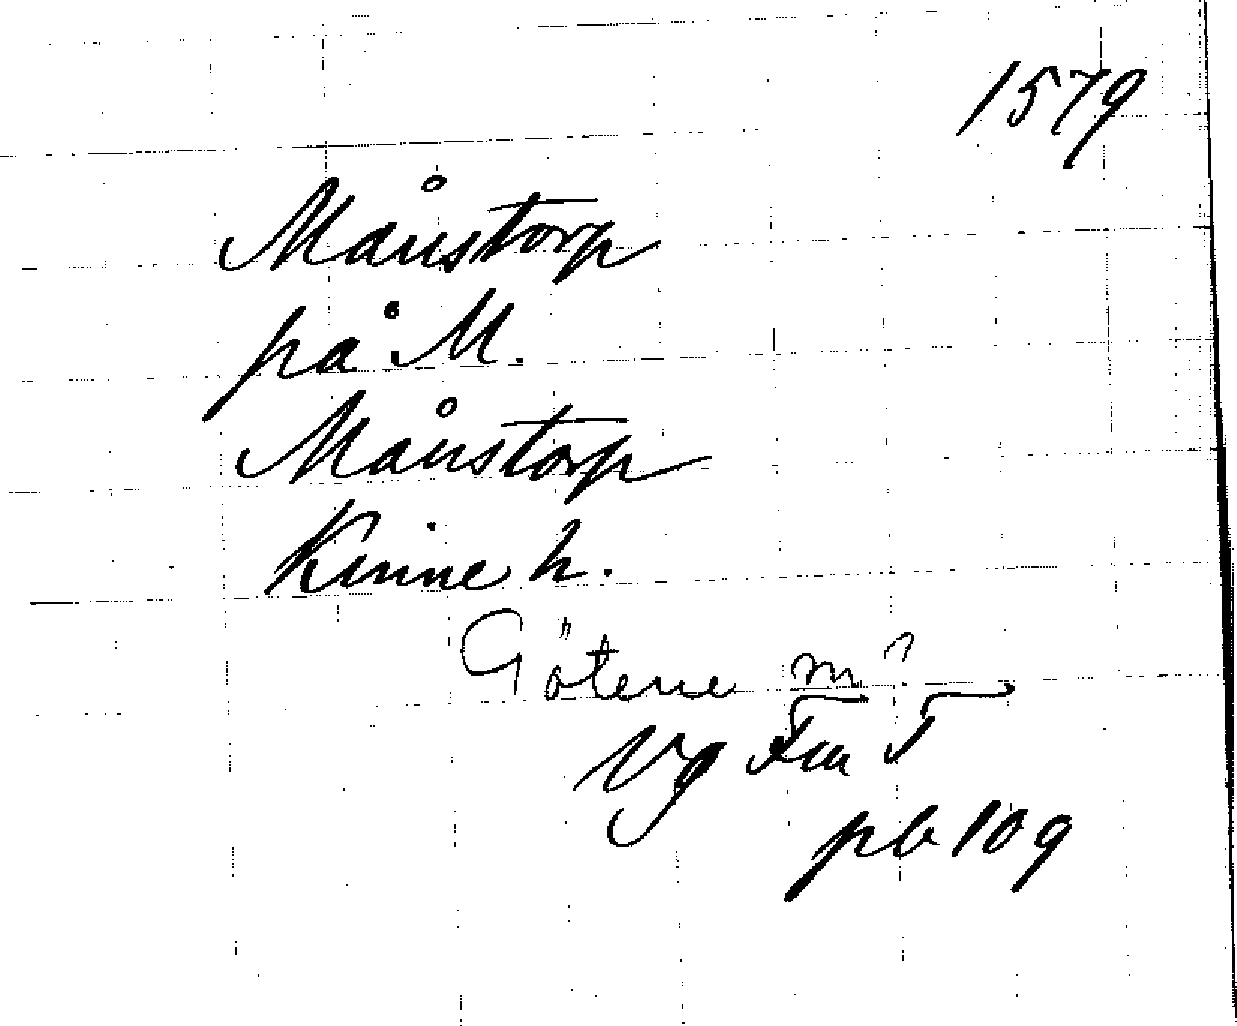 1579
Månstorp
på M.
Månstorp
Kinne h.
Götene m?
Vg Fru 5
pb 109